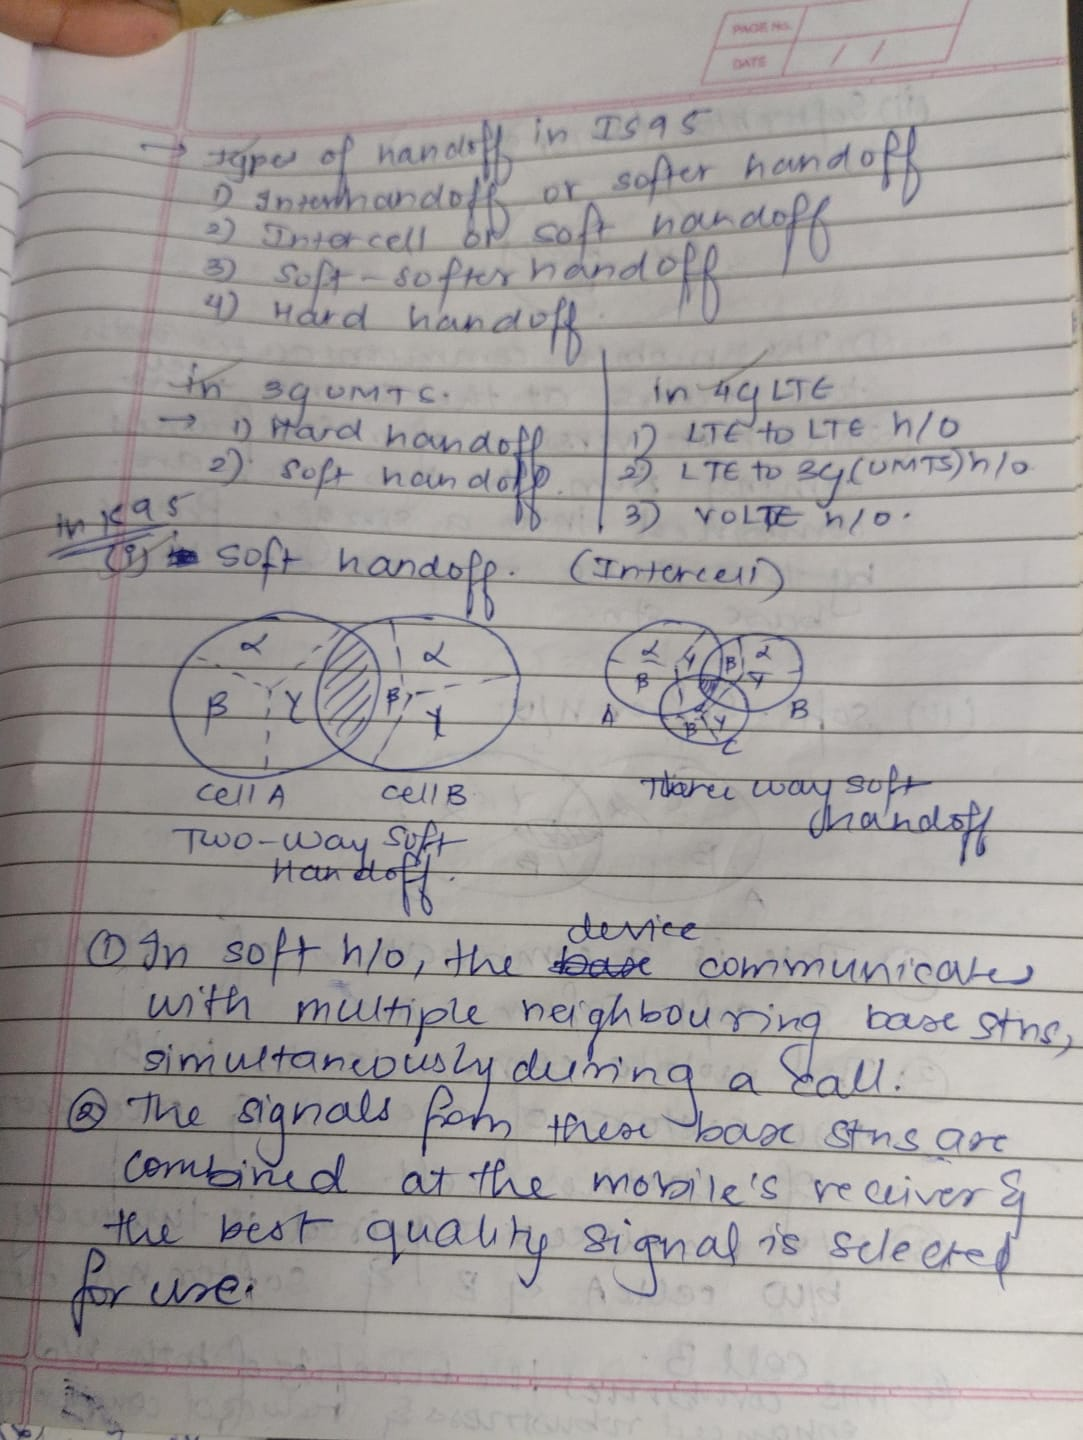 PAGE No.
DATE / /
→ types of handoff in IS95
1) Interhandoff or softer handoff
2) Intercell or soft handoff
3) Soft-softer handoff
4) Hard handoff.
in 3g UMTS.
→ 1) Hard handoff
2) Soft handoff.
in 4g LTE
1) LTE to LTE h/o
2) LTE to 3g(UMTS)h/o
3) VOLTE h/o.
in IS95
Soft handoff. (Intercell)
α α
β γ β γ
cell A cell B
Two-way Soft
Handoff.
α γ β α
β γ
A α B
β γ
C
Three way soft
handoff
① In soft h/o, the device communicates
with multiple neighbouring base stns,
simultaneously during a call.
② The signals from these base stns are
combined at the mobile's receiver &
the best quality signal is selected
for use.